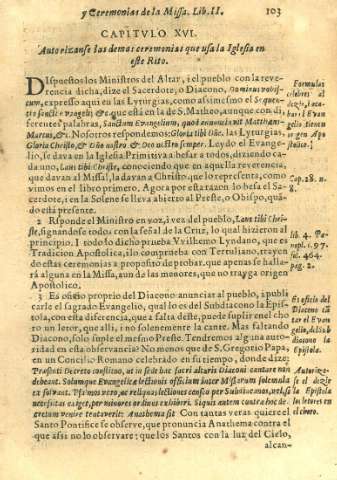 y Ceremonias de la Missa. Lib. II.
103
CAPITVLO XVI.
Autorizanse las demas ceremonias que usa la Iglesia en
este Rito.
DIspuestos los Ministros del Altar, i el pueblo con la reve-
rencia dicha, dize el Sacerdote, o Diacono, Dominus vobis-
cum, expresso aqui en las Lyturgias, como assimesmo el Sequen-
tia sancti evangelij &c. que està en la de S. Matheo, aunque con di-
ferentes palabras, Sanctum Evangelium, quod annunciavit Matthæus
Marcus, &c. Nosotros respondemos: Gloria tibi Dñe. las Lyturgias,
Gloria Christo, & Dño nostro & Deo nostro semper. Leydo el Evange-
lio, se dava en la Iglesia Primitiva a besar a todos, diziendo ca-
da uno, Laus tibi Christe, conociendo que en aquella reverencia,
que davan al Missal, la davan a Christo que lo representa, como
vimos en el libro primero. Agora por esta razon lo besa el Sa-
cerdote, i en la Solene se lleva abierto al Preste, o Obispo, quã-
do està presente.
2 Responde el Ministro en voz, i vea del pueblo, Laus tibi Chri-
ste, signandose todos con la señal de la Cruz, lo qual hizieron al
principio. I todo lo dicho prueba VVilhemo Lyndano, que es
Tradicion Apostolica, i lo comprueba con Tertuliano, trayen
do estas ceremonias a proposito de probar, que apenas se halla-
rà alguna en la Missa, aun de las menores, que no trayga origen
Apostolico.
3 Es oficio proprio del Diacono anunciar al pueblo, i publi-
carle el sagrado Evangelio, qual lo es del Subdiacono la Epis-
tola, con esta diferencia, que a falta deste, puede suplir en el cho
ro un letor, que alli, i no solenemente la cante. Mas faltando
Diacono, solo suple el mesmo Preste. Tendremos alguna auto-
ridad en esta observancia? No menos que de S. Gregorio Papa,
en un Concilio Romano celebrado en su tiempo, donde dize:
Præsenti Decreto constituo, ut in sede hac sacri altaris Diaconi cantare non
debeant. Solumque Evangelicæ lectionis officium inter Missarum solemnia
exsolvant. Psalmos vero, ac reliquas lectiones censeo per Subdiaconos, vel, si
necessitas exiget, per minores ordines exhiberi. Siquis autem contra hoc de-
cretum venire tentaverit: Anathema sit. Con tantas veras quiere el
Santo Pontifice se observe, que pronuncia Anathema contra el
que assi no lo observare: que los Santos con la luz del Cielo,
alcan-
Formulas
celebres al
dezir, i aca-
bar el Evan
gelio, tienen
origen Apos
tolico.
Cap. 18. n.
8.
lib. 4. Pa-
nopl. c. 97.
fol. 464.
pag. 2.
Es oficio del
Diacono cã
tar el Evan
gelio, del Sub
diacono la
Epistola.
Autorize-
se el dezir
la Epistola
los letores en
el choro.